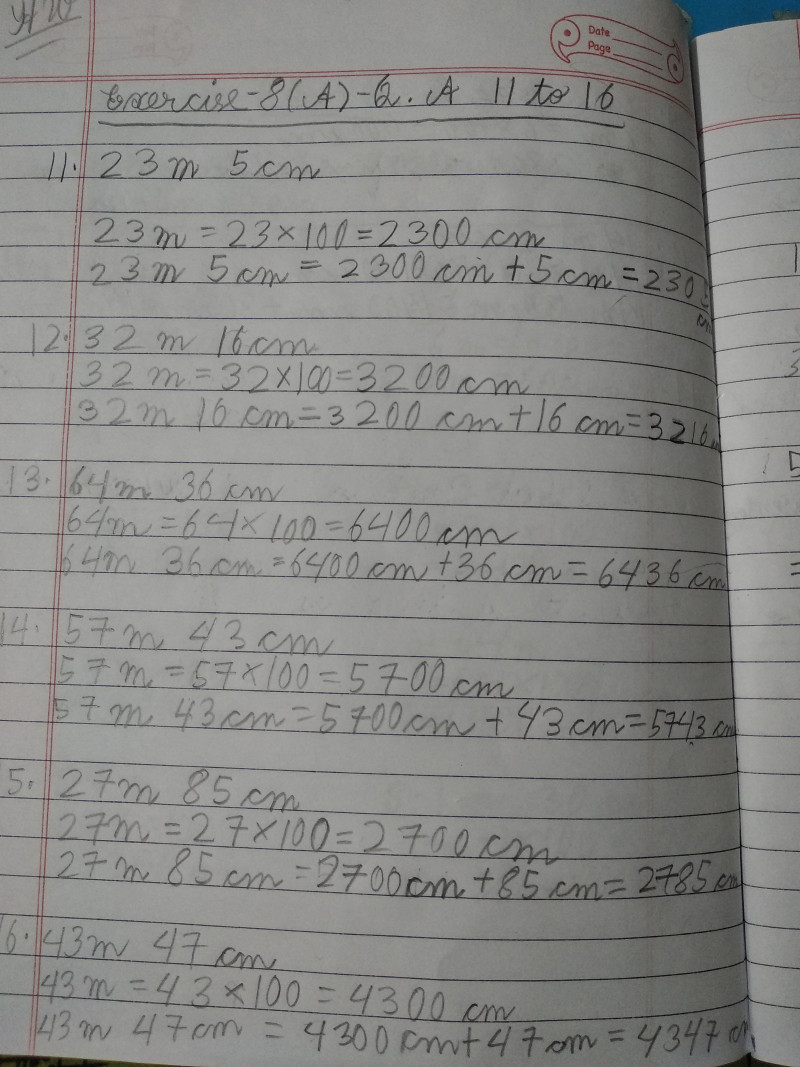 H.W
Date
Page
Exercise-8(A)-Q.A 11 to 16
11. 23m 5cm
23m = 23×100 = 2300 cm
23m 5cm = 2300 cm + 5cm = 2305
cm
12. 32 m 16cm
32 m = 32×100 = 3200 cm
32m 16 cm = 3200 cm + 16 cm = 3216
13. 64m 36 cm
64m = 64×100 = 6400 cm
64m 36 cm = 6400 cm + 36 cm = 6436 cm
14. 57 m 43 cm
57 m = 57×100 = 5700 cm
57 m 43 cm = 5700cm + 43 cm = 5743 cm
5. 27m 85 cm
27m = 27×100 = 2700 cm
27 m 85 cm = 2700cm + 85 cm = 2785 cm
6. 43m 47 cm
43m = 43×100 = 4300 cm
43m 47cm = 4300 cm + 47 cm = 4347